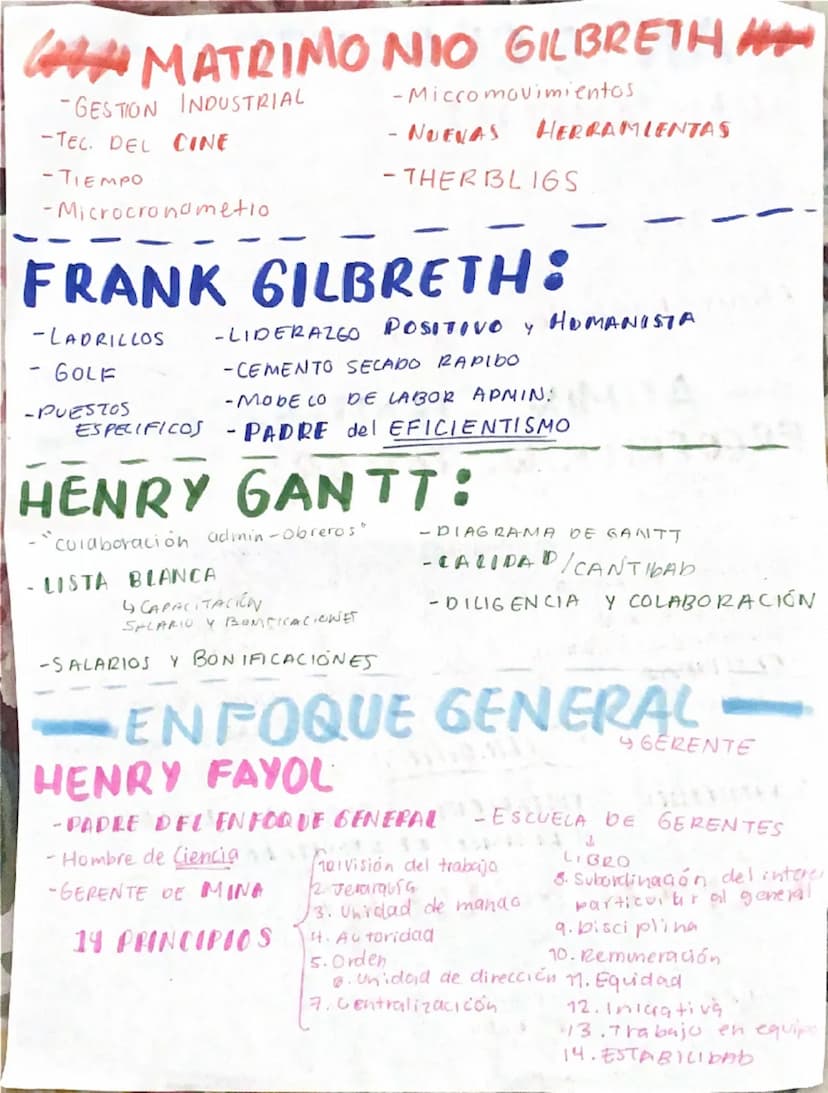 MATRIMONIO GILBRETH
- GESTION INDUSTRIAL
- TEC. DEL CINE
- TIEMPO
- Microcronometio
- Miccomovimientos
- NUEVAS HERRAMIENTAS
- THERBLIGS
FRANK GILBRETH:
- LADRILLOS
- GOLF
- PUESTOS
ESPECIFICOS
- LIDERAZGO POSITIVO y HUMANISTA
- CEMENTO SECADO RAPIDO
- MODELO DE LABOR ADMIN:
- PADRE del EFICIENTISMO
HENRY GANTT:
- "colaboración admin-obreros"
- LISTA BLANCA
↳ CAPACITACIÓN
SALARIO Y BONIFICACIONES
- SALARIOS Y BONIFICACIÓNES
- DIAGRAMA DE GANTT
- CALIDAD/CANTIDAD
- DILIGENCIA Y COLABORACIÓN
ENFOQUE GENERAL
↳ GERENTE
HENRY FAYOL
- PADRE DEL ENFOQUE GENERAL
- Hombre de Ciencia
- GERENTE DE MINA
14 PRINCIPIOS
1. División del trabajo
2. Jerarquía
3. Unidad de mando
4. Autoridad
5. Orden
6. Unidad de dirección
7. Centralizacición
- ESCUELA DE GERENTES
↓
LIBRO
8. Subordinación del interes
particular al general
9. Disciplina
10. Remuneración
11. Equidad
12. Iniciativa
13. Trabajo en equipo
14. ESTABILIDAD